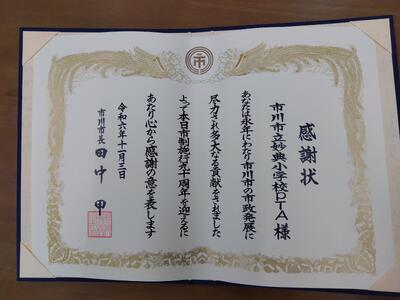 感謝状
市川市立妙典小学校PTA 様
あなたは永年にわたり市川市の市政発展に
尽力され多大なる貢献をされました
よって本日市制施行九十周年を迎えるに
あたり心から感謝の意を表します
令和六年十一月三日
市川市長 田中 甲